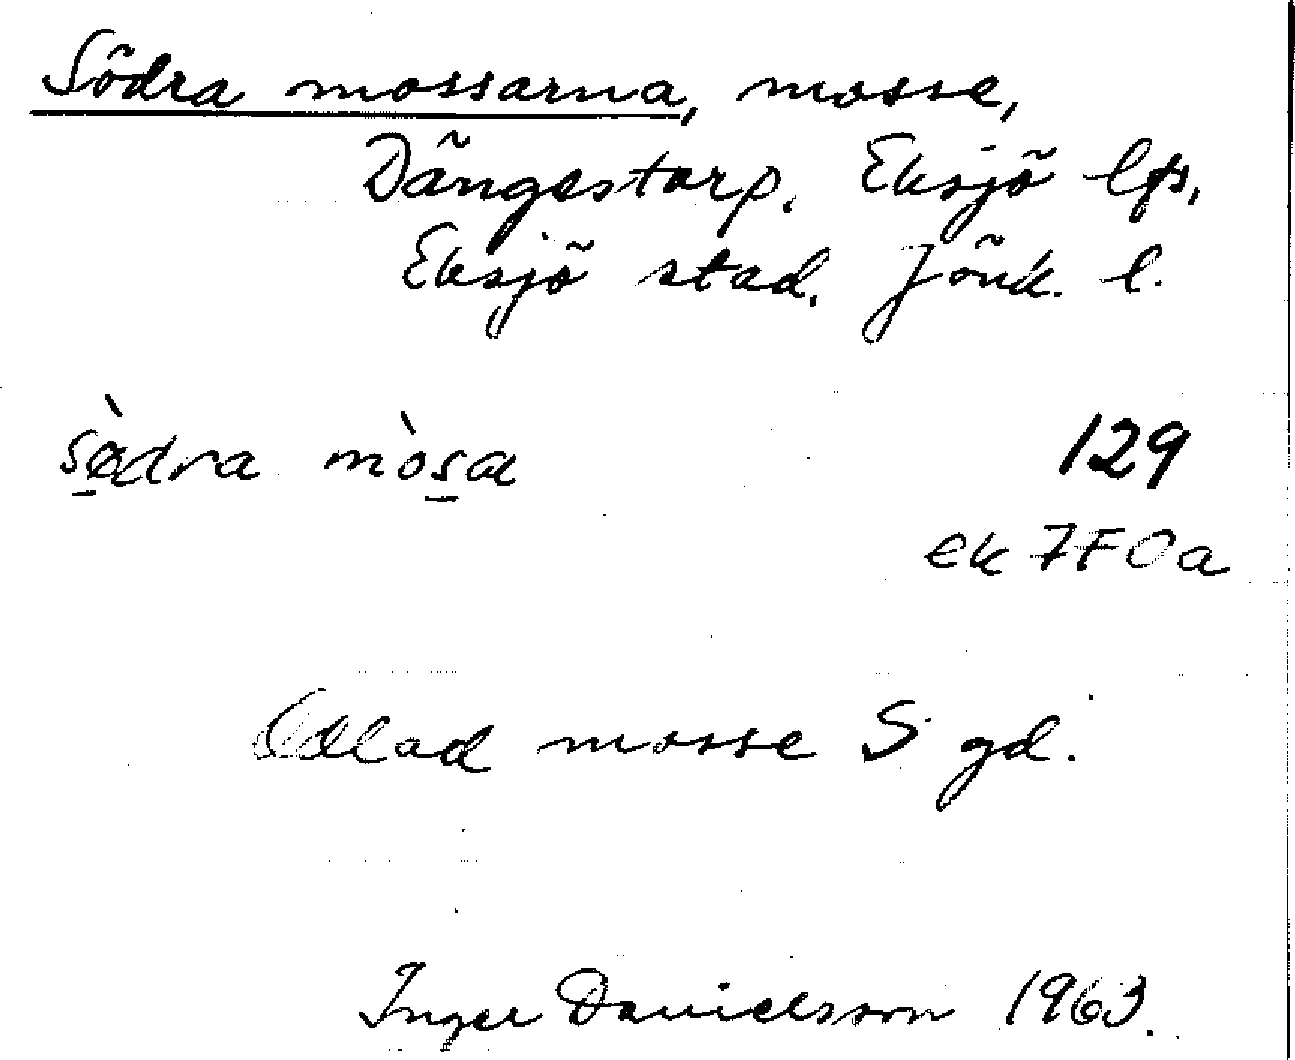 Södra mossarna, mosse,
Dängestorp. Eksjö lfs,
Eksjö stad. Jönk. l.
sødra mòsa 129
ek 7F0a
Odlad mosse S gd.
Inger Danielsson 1963.